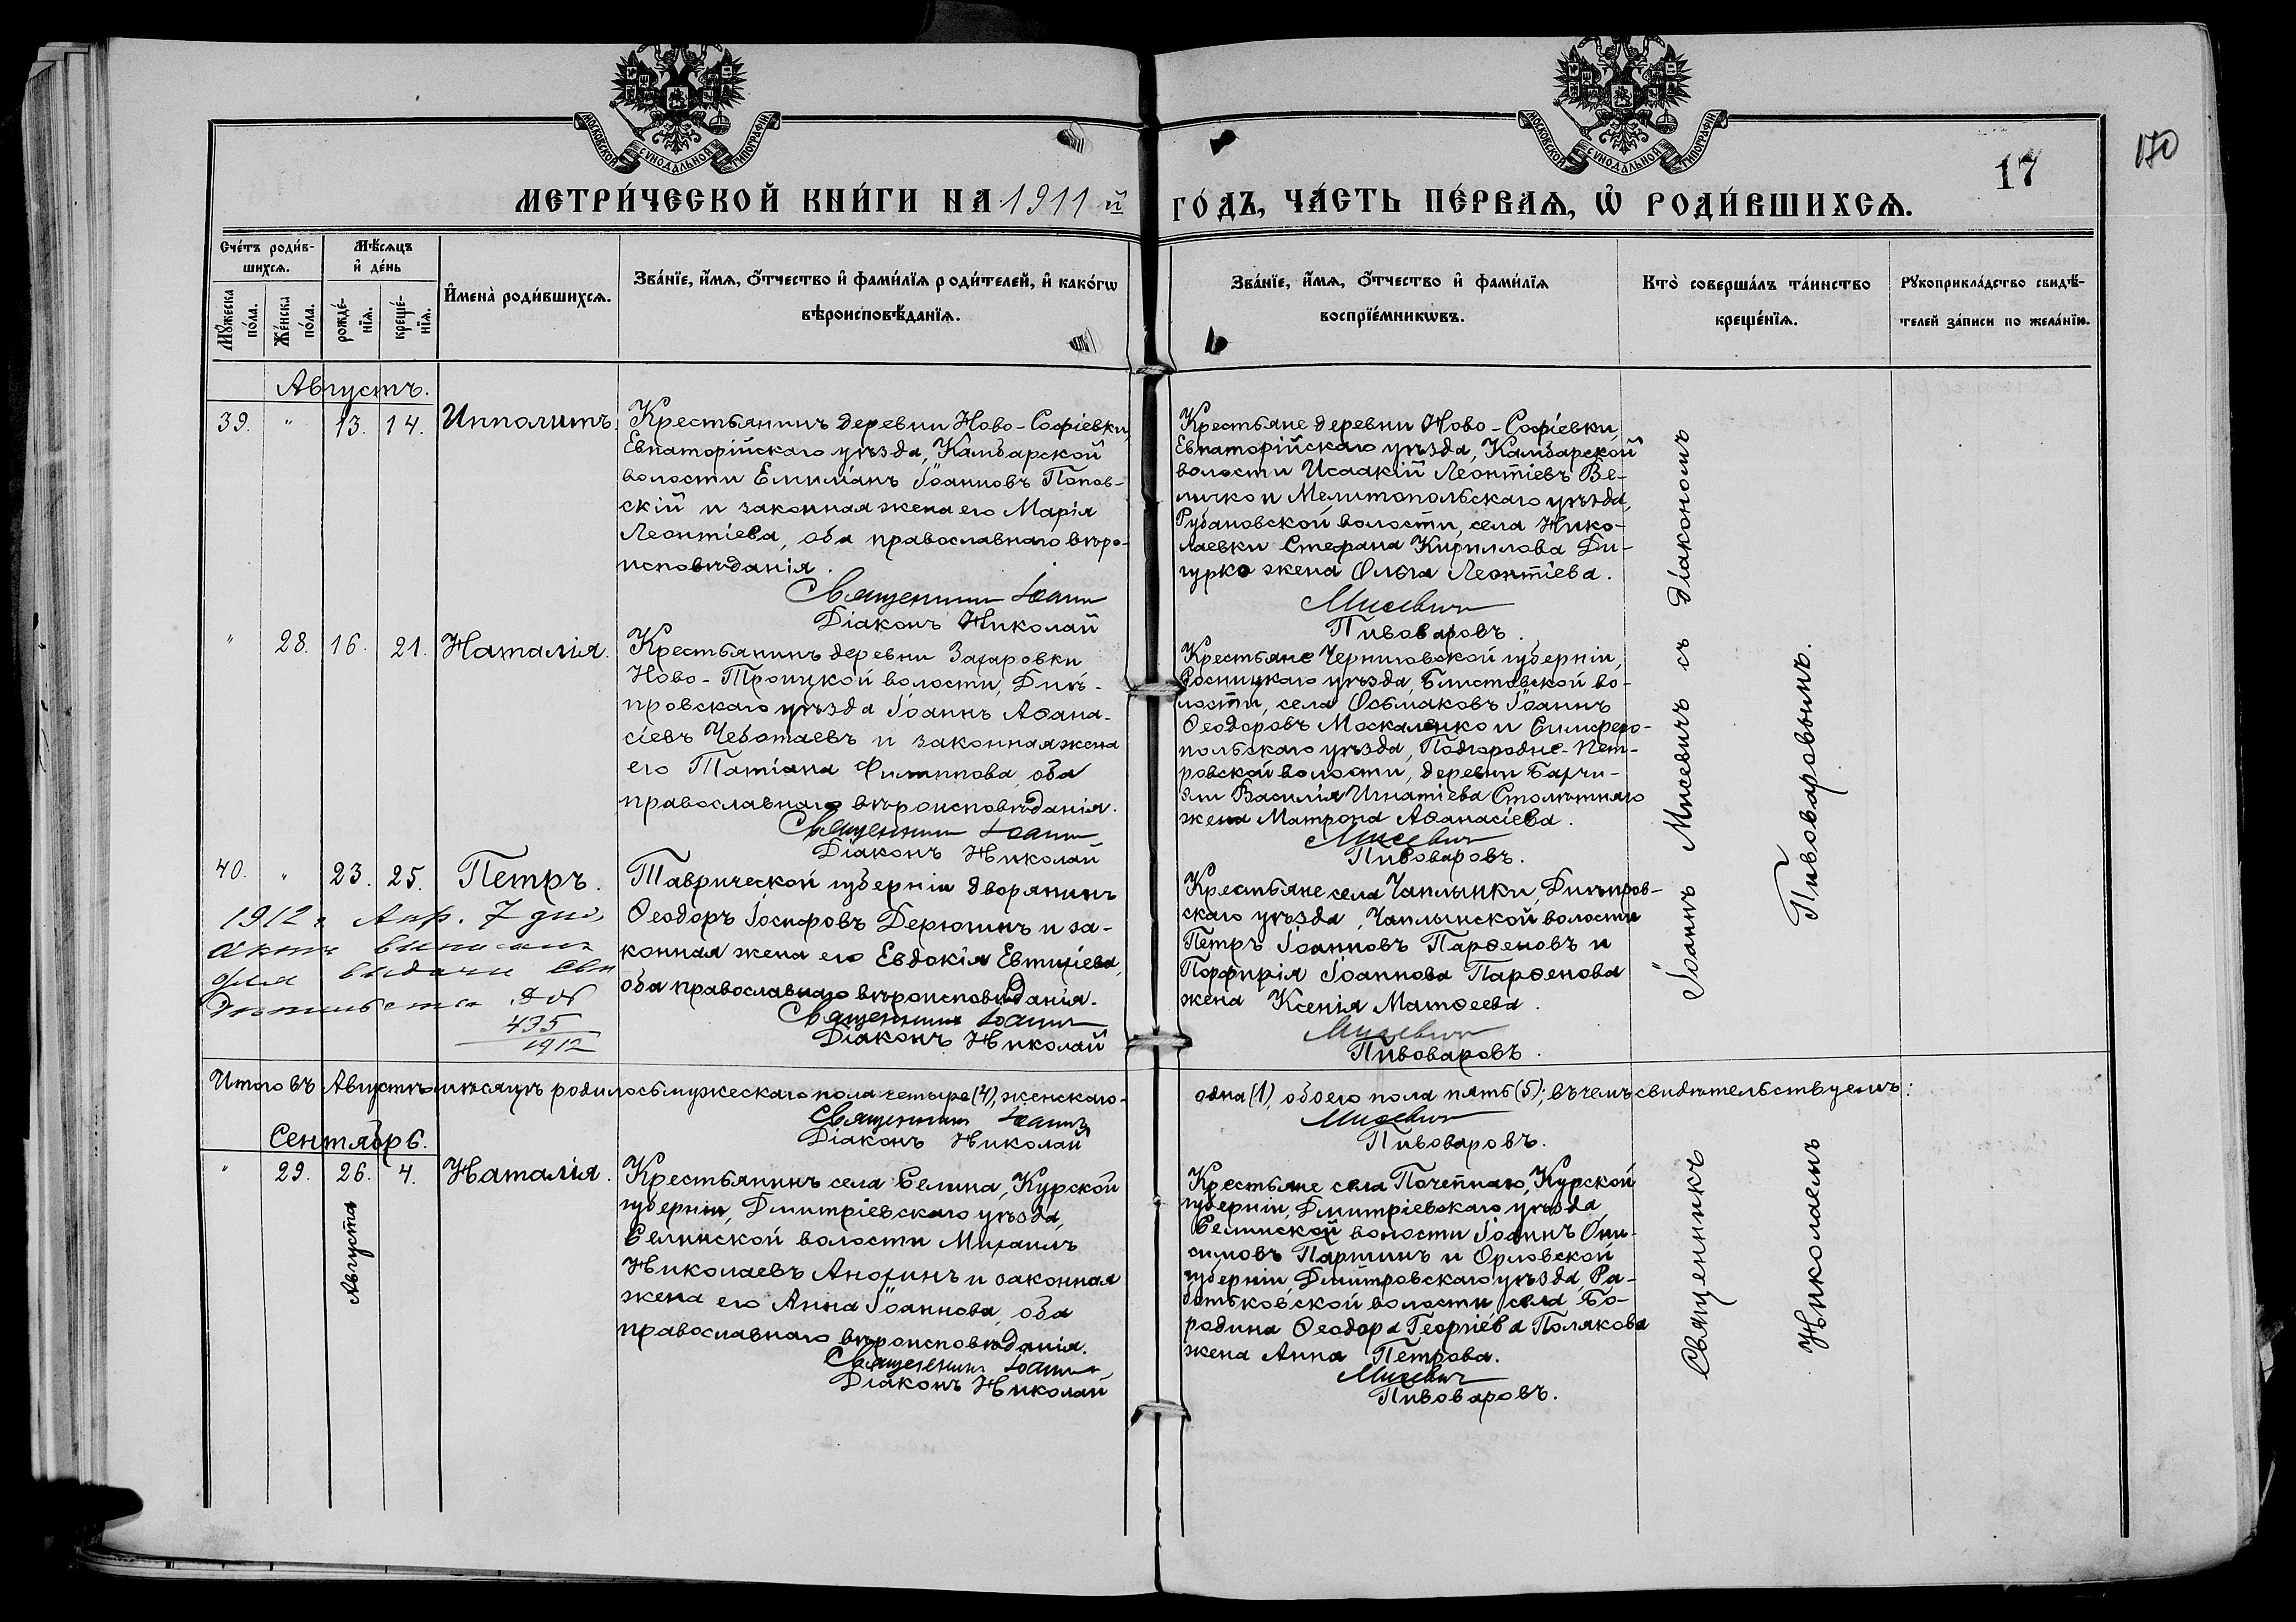 МОСКОВСКОЙ СѴНОДАЛЬНОЙ ТИПОГРАФІИ
МОСКОВСКОЙ СѴНОДАЛЬНОЙ ТИПОГРАФІИ
170
17
МЕТРИ́ЧЕСКОЙ КНИ́ГИ НА 1911 й
ГО́ДЪ, ЧА́СТЬ ПЕ́РВАѦ, Ѡ҆ РОДИ́ВШИХСѦ.
Сче́тъ роди́в-
шихсѧ.
Мꙋ́жеска
по́ла.
Же́нска
по́ла.
Мѣ́сѧцъ
и҆ де́нь
рожде́-
нїѧ.
креще́-
нїѧ.
И҆мена̀ роди́вшихсѧ.
Зва́нїе, и҆́мѧ, ѻ҆́тчество и҆ фами́лїѧ роди́телей, и҆ како́гѡ
вѣроисповѣ́данїѧ.
Зва́нїе, и҆́мѧ, ѻ҆́тчество и҆ фами́лїѧ
воспрїе́мникѡвъ.
Кто̀ соверша́лъ та́инство
креще́нїѧ.
Рꙋкоприкла́дство свидѣ́-
телей за́писи по жела́нїю.
Августъ.
39. " 13. 14. Ипполитъ.
Крестьянинъ деревни Ново-Софіевки,
Евпаторійскаго уѣзда, Камбарской
волости Емиліанъ Іоанновъ Попов-
скій и законная жена его Марія
Леонтіева, оба православнаго вѣро-
исповѣданія.
Священникъ Іоаннъ
Діаконъ Николай
Крестьяне деревни Ново-Софіевки,
Евпаторійскаго уѣзда, Камбарской
волости Исаакій Леонтіевъ Ве-
личко и Мелитопольскаго уѣзда,
Рубановской волости, села Нико-
лаевки Стефана Кириллова Ди-
гурко жена Ольга Леонтіева.
Мисевичъ
Пивоваровъ.
" 28. 16. 21. Наталія.
Крестьянинъ деревни Захаровки
Ново-Троицкой волости, Днѣ-
провскаго уѣзда Іоаннъ Аѳана-
сіевъ Чеботаевъ и законная жена
его Татіана Филиппова, оба
православнаго вѣроисповѣданія.
Священникъ Іоаннъ
Діаконъ Николай
Крестьяне Черниговской губерніи,
уѣзда, Блистовской во-
лости, села Осьмаковъ Іоаннъ
Ѳеодоровъ Москаленко и Симферо-
польскаго уѣзда, Подгородне-Пет-
ровской волости, деревни Бахчи-
эли Василія Игнатіева Столѣтняго
жена Матрона Аѳанасіева.
Мисевичъ
Пивоваровъ.
40. " 23. 25. Петръ.
1912 г. Апр. 7 дня
актъ выписанъ
для выдачи сви
дѣтельства
435
1912
Таврической губерніи дворянинъ
Ѳеодоръ Іосифовъ Дерюгинъ и за-
конная жена его Евдокія Евтихіева,
оба православнаго вѣроисповѣданія.
Священникъ Іоаннъ
Діаконъ Николай
Крестьяне села Чаплынки, Днѣпров-
скаго уѣзда, Чаплынской волости
Петръ Іоанновъ Парѳеновъ и
Порфирія Іоаннова Парѳенова
жена Ксенія Матѳеева.
Мисевичъ
Пивоваровъ.
Іоаннъ Мисевичъ съ Діакономъ
Пивоваровымъ.
Итого въ Августѣ мѣсяцѣ родилось мужескаго пола четыре (4), женскаго-
одна (1), обоего пола пять (5); въ чемъ свидѣтельствуемъ:
Священникъ Іоаннъ
Діаконъ Николай
Мисевичъ
Пивоваровъ.
Сентябрь.
" 29. 26. 4. Наталія.
Августа
Крестьянинъ села Селина, Курской
губерніи, Дмитріевскаго уѣзда,
Селинской волости Михаилъ
Николаевъ Анохинъ и законная
жена его Анна Іоаннова, оба
православнаго вѣроисповѣданія.
Священникъ Іоаннъ
Діаконъ Николай
Крестьяне села Почепнаго, Курской
губерніи, Дмитріевскаго уѣзда,
Селинской волости Іоаннъ Они-
симовъ Паршинъ и Орловской
губерніи, Дмитровскаго уѣзда, Ра-
батьковской волости села Бо-
родина Ѳеодора Георгіева Полякова
жена Анна Петрова.
Мисевичъ
Пивоваровъ.
Священникъ
Николаемъ